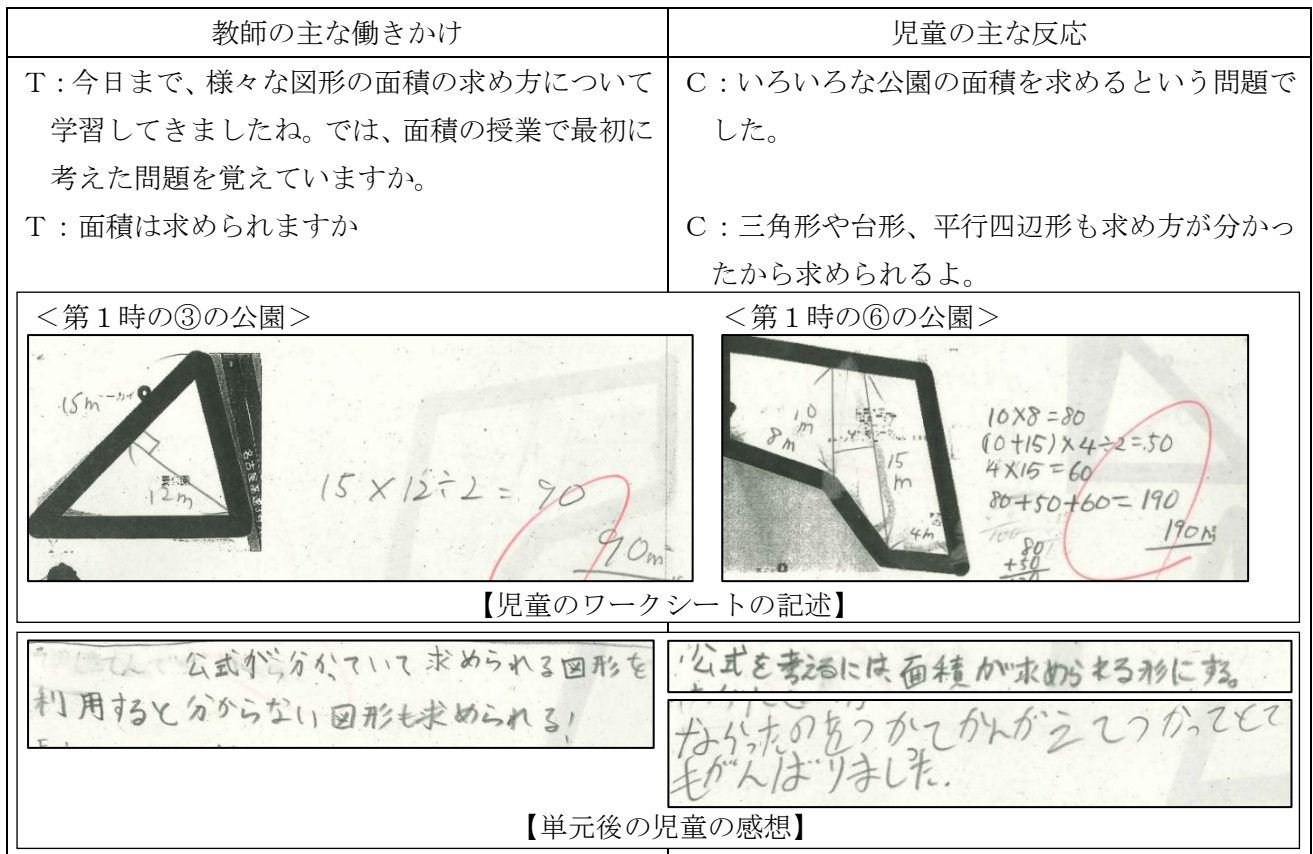 教師の主な働きかけ
児童の主な反応
T：今日まで、様々な図形の面積の求め方について
学習してきましたね。では、面積の授業で最初に
考えた問題を覚えていますか。
C：いろいろな公園の面積を求めるという問題で
した。
T：面積は求められますか
C：三角形や台形、平行四辺形も求め方が分かっ
たから求められるよ。
＜第１時の③の公園＞
15m
12m
15×12÷2=90
90m²
＜第１時の⑥の公園＞
10m
8m
15m
4m
10×8=80
(10+15)×4÷2=50
4×15=60
80+50+60=190
190m²
80
+50
【児童のワークシートの記述】
公式が分かっていて求められる図形を
利用すると分からない図形も求められる！
公式を考えるには、面積が求められる形にする。
なかったのをつかてかんがえてつかってとて
もがんばりました。
【単元後の児童の感想】